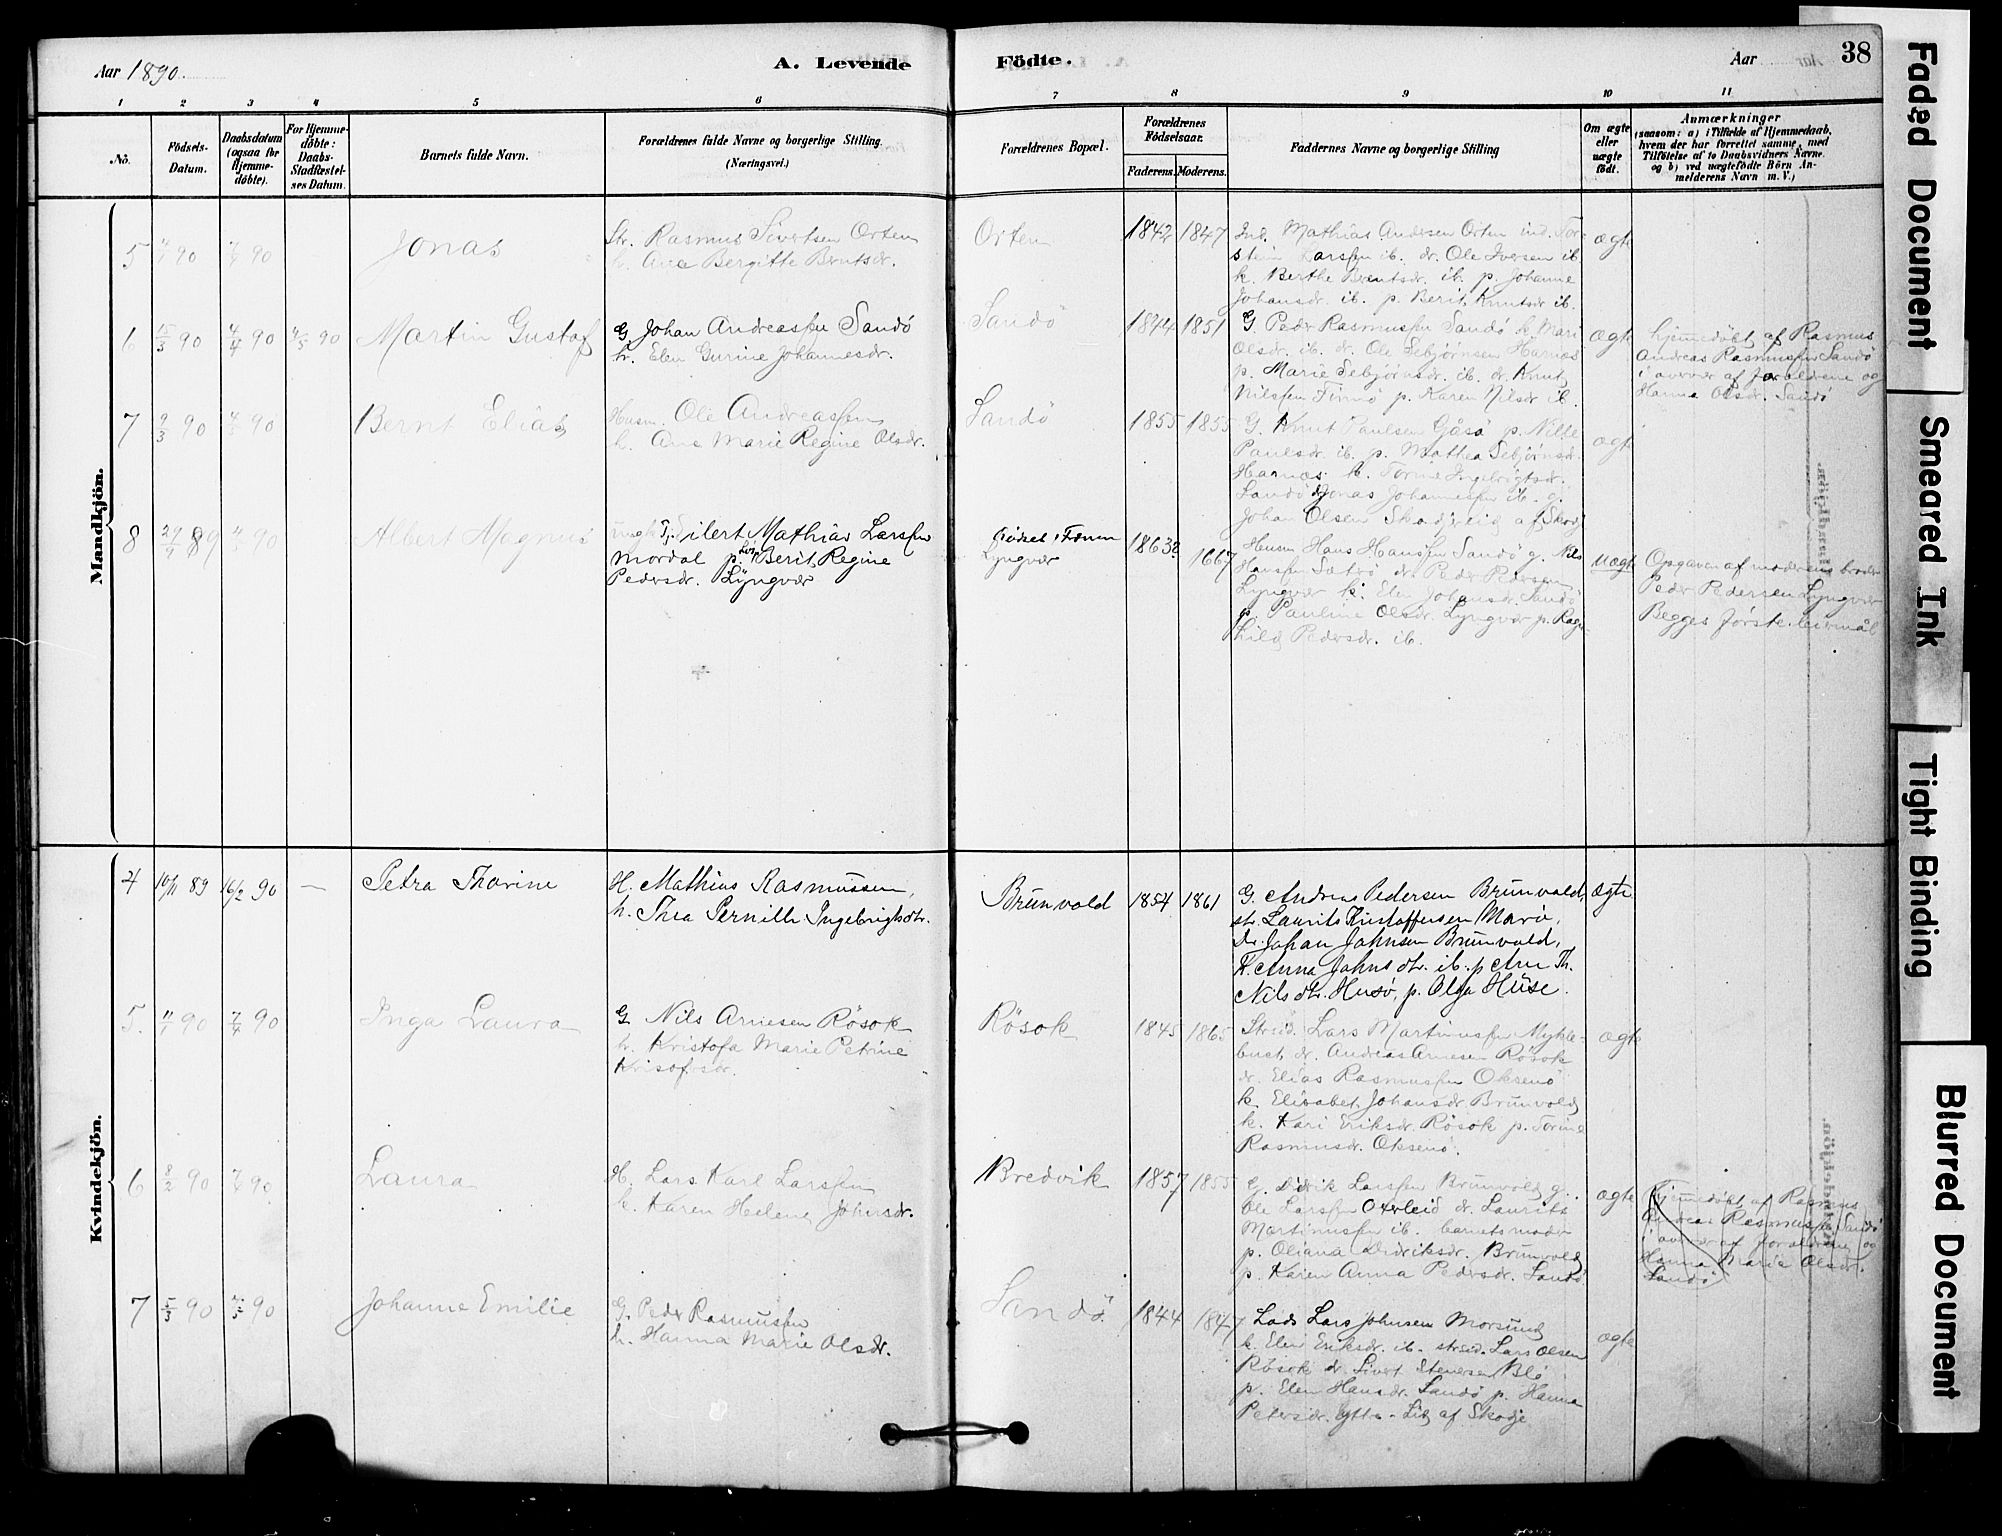 Aar 1890.
A. Levende
Födte.
Aar
38
1
2
3
4
5
6
7
8
9
10
11
No.
Födsels-
Datum.
Daabsdatum
(ogsaa for
Hjemme-
döbte).
For Hjemme-
döbte:
Daabs-
Stadfæstel-
ses Datum.
Barnets fulde Navn.
Forældrenes fulde Navne og borgerlige Stilling.
(Næringsvei.)
Forældrenes Bopæl.
Forældrenes
Födselsaar.
Faderens.
Moderens.
Faddernes Navne og borgerlige Stilling
Om ægte
eller
uægte
födt.
Anmærkninger
(saasom: a) i Tilfælde af Hjemmedaab,
hvem der har forrettet samme, med
Tilföielse af to Daabsvidners Navne.
og b) ved uægtefödte Börn An-
melderens Navn m. V.)
Mandkjön.
5
90
90
Jonas
Str. Rasmus Sivertsen Orten
h. Ane Bergitte Berntsdr.
Orten
1842
1847
Ind. Mathias Andersen Orten ind. Tor-
stein Larssen ib. dr. Ole Iversen ib.
k. Berthe Berntsdr. ib. p. Johanne
Johansdr. ib. p. Berit Knutsdr ib.
ægte
6
15/3 90
4/4 90
4/5 90
Martin Gustaf
G. Johan Andreassen Sandö
h. Elen Gurine Johannesdr.
Sandö
1844
1851
G. Peder Rasmussen Sandö k. Mari
Olsdr. ib. dr. Ole Sebjørnsen Harnæs
p. Marie Sebjørnsdr. ib. dr. Knut
Nilssen Finnö p. Karen Nilsdr ib.
ægte
hjemmedöbt af Rasmus
Andreas Rasmussen Sandö
i overvær af forældrene og
Hanna Olsdr. Sandö
7
9/3 90
4/5 90
Bernt Elias
Husm. Ole Andreassen
h. Ane Marie Regine Olsdr.
Sandö
1855
1855
G. Knut Paulsen Gåsö p. Nille
Paulsdr. ib. p. Mathea Sebjørnsdr.
Harnæs. k. Torine Ingebrigtsdr.
Sandö Jonas Johannessen ib. g.
Johan Olsen Skodjereid af Skodj
ægte
8
89
4/5 90
Albert Magnus
Eilert Mathias Larssen
Mordal p. Berit Regine
Pedersdr. Lyngvær
Lyngvær
1863
1667
Husm Hans Hanssen Sandö g. Nils
Hanssen Sætrö dr. Peder Pedersen
Lyngvær k. Elen Johansdr. Sandö
p. Pauline Olsdr. Lyngvær p. Ragn-
hild Pedersdr. ib.
uægte
Opgaven af moderens broder
Peder Pedersen Lyngvær
Begges første leiermål
Kvindekjön.
4
10/11 89
16/2 90
—
Petra Thorine
H. Mathias Rasmussen,
h. Thea Pernille Ingebrigtsdtr.
Brunvold
1854
1861
G. Andreas Pedersen Brunvold,
str. Laurits Kristoffersen Marö,
Dr. Johan Johnsen Brunvold,
K. Anna Johnsdtr. ib. p. Ane Th.
Nilsdtr. Husö, p. Olga Huse.
Ægte
5.
11/1 90
7/4 90
Inga Laura
G. Nils Arnesen Rösok
h. Kristofa Marie Petrine
Kristofersdr.
Rösok
1845
1865
Strid. Lars Martinussen Mykle-
bust dr. Andreas Arnesen Rösok
dr. Elias Rasmussen Oksenö
k. Elisabet Johansdr. Brunvold
k. Kari Eriksdr. Rösok p. Torine
Rasmusdr. Oksenö.
ægte
6
8/2 90
7/4 90
Laura
H. Lars Karl Larssen
h. Karen Helene Johnsdr.
Bredvik
1857
1855
G. Didrik Larssen Brunvold g.
Ole Larssen Oterleid dr. Laurits
Martinussen ib. barnets moder
p. Oliana Didriksdr. Brunvold
p. Karen Anna Pedersdr. Sandö
ægte
hjemmedöbt af Rasmus
Andreas Rasmussen Sandö
i overvær af forældrene og
Hanna Marie Olsdr.
Sandö
7
5/3 90
4/5 90
Johanne Emilie
G. Peder Rasmussen
h. Hanna Marie Olsdr.
Sandö
1844
1847
Lods Lars Johnsen Morsund
k. Elen Eriksdr. ib. strid. Lars Olsen
Rösok dr. Sivert Stenersen Blö
p. Elen Hansdr. Sandö p. Hanna
Petersdr. ytre-Lid af Skodje
ægte
Faded Document
Smeared Ink
Tight Binding
Blurred Document